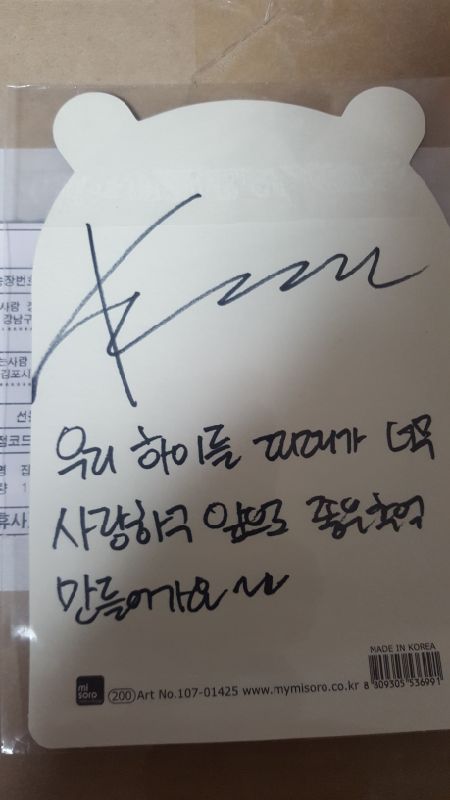 장번호
사람
강남구
는사람
김포시
점코드
량 1
휴사
우리 하이들 너무
사랑하구 앞으로 좋은추억
만들어가요~~
MADE IN KOREA
mi
soro
200 Art No.107-01425 www.mymisoro.co.kr 8 809305 536991